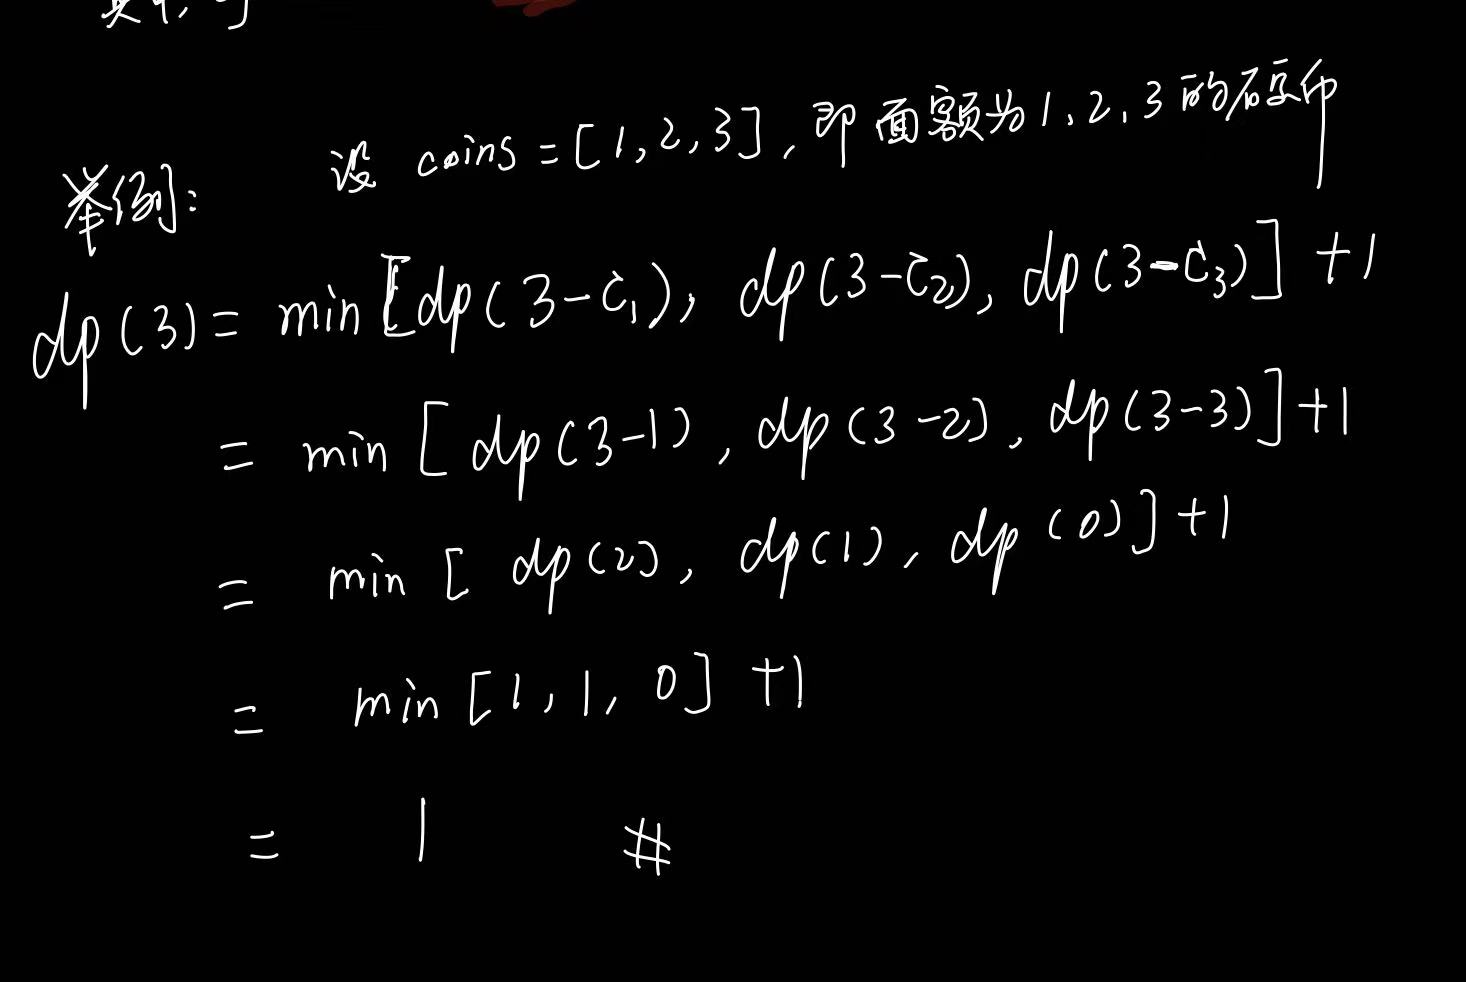 举例: 设 coins = [1, 2, 3], 即面额为1, 2, 3的硬币
dp(3) = min[dp(3-c₁), dp(3-c₂), dp(3-c₃)] +1
= min [dp(3-1), dp(3-2), dp(3-3)] +1
= min [dp(2), dp(1), dp(0)] +1
= min [1, 1, 0] +1
= 1 #